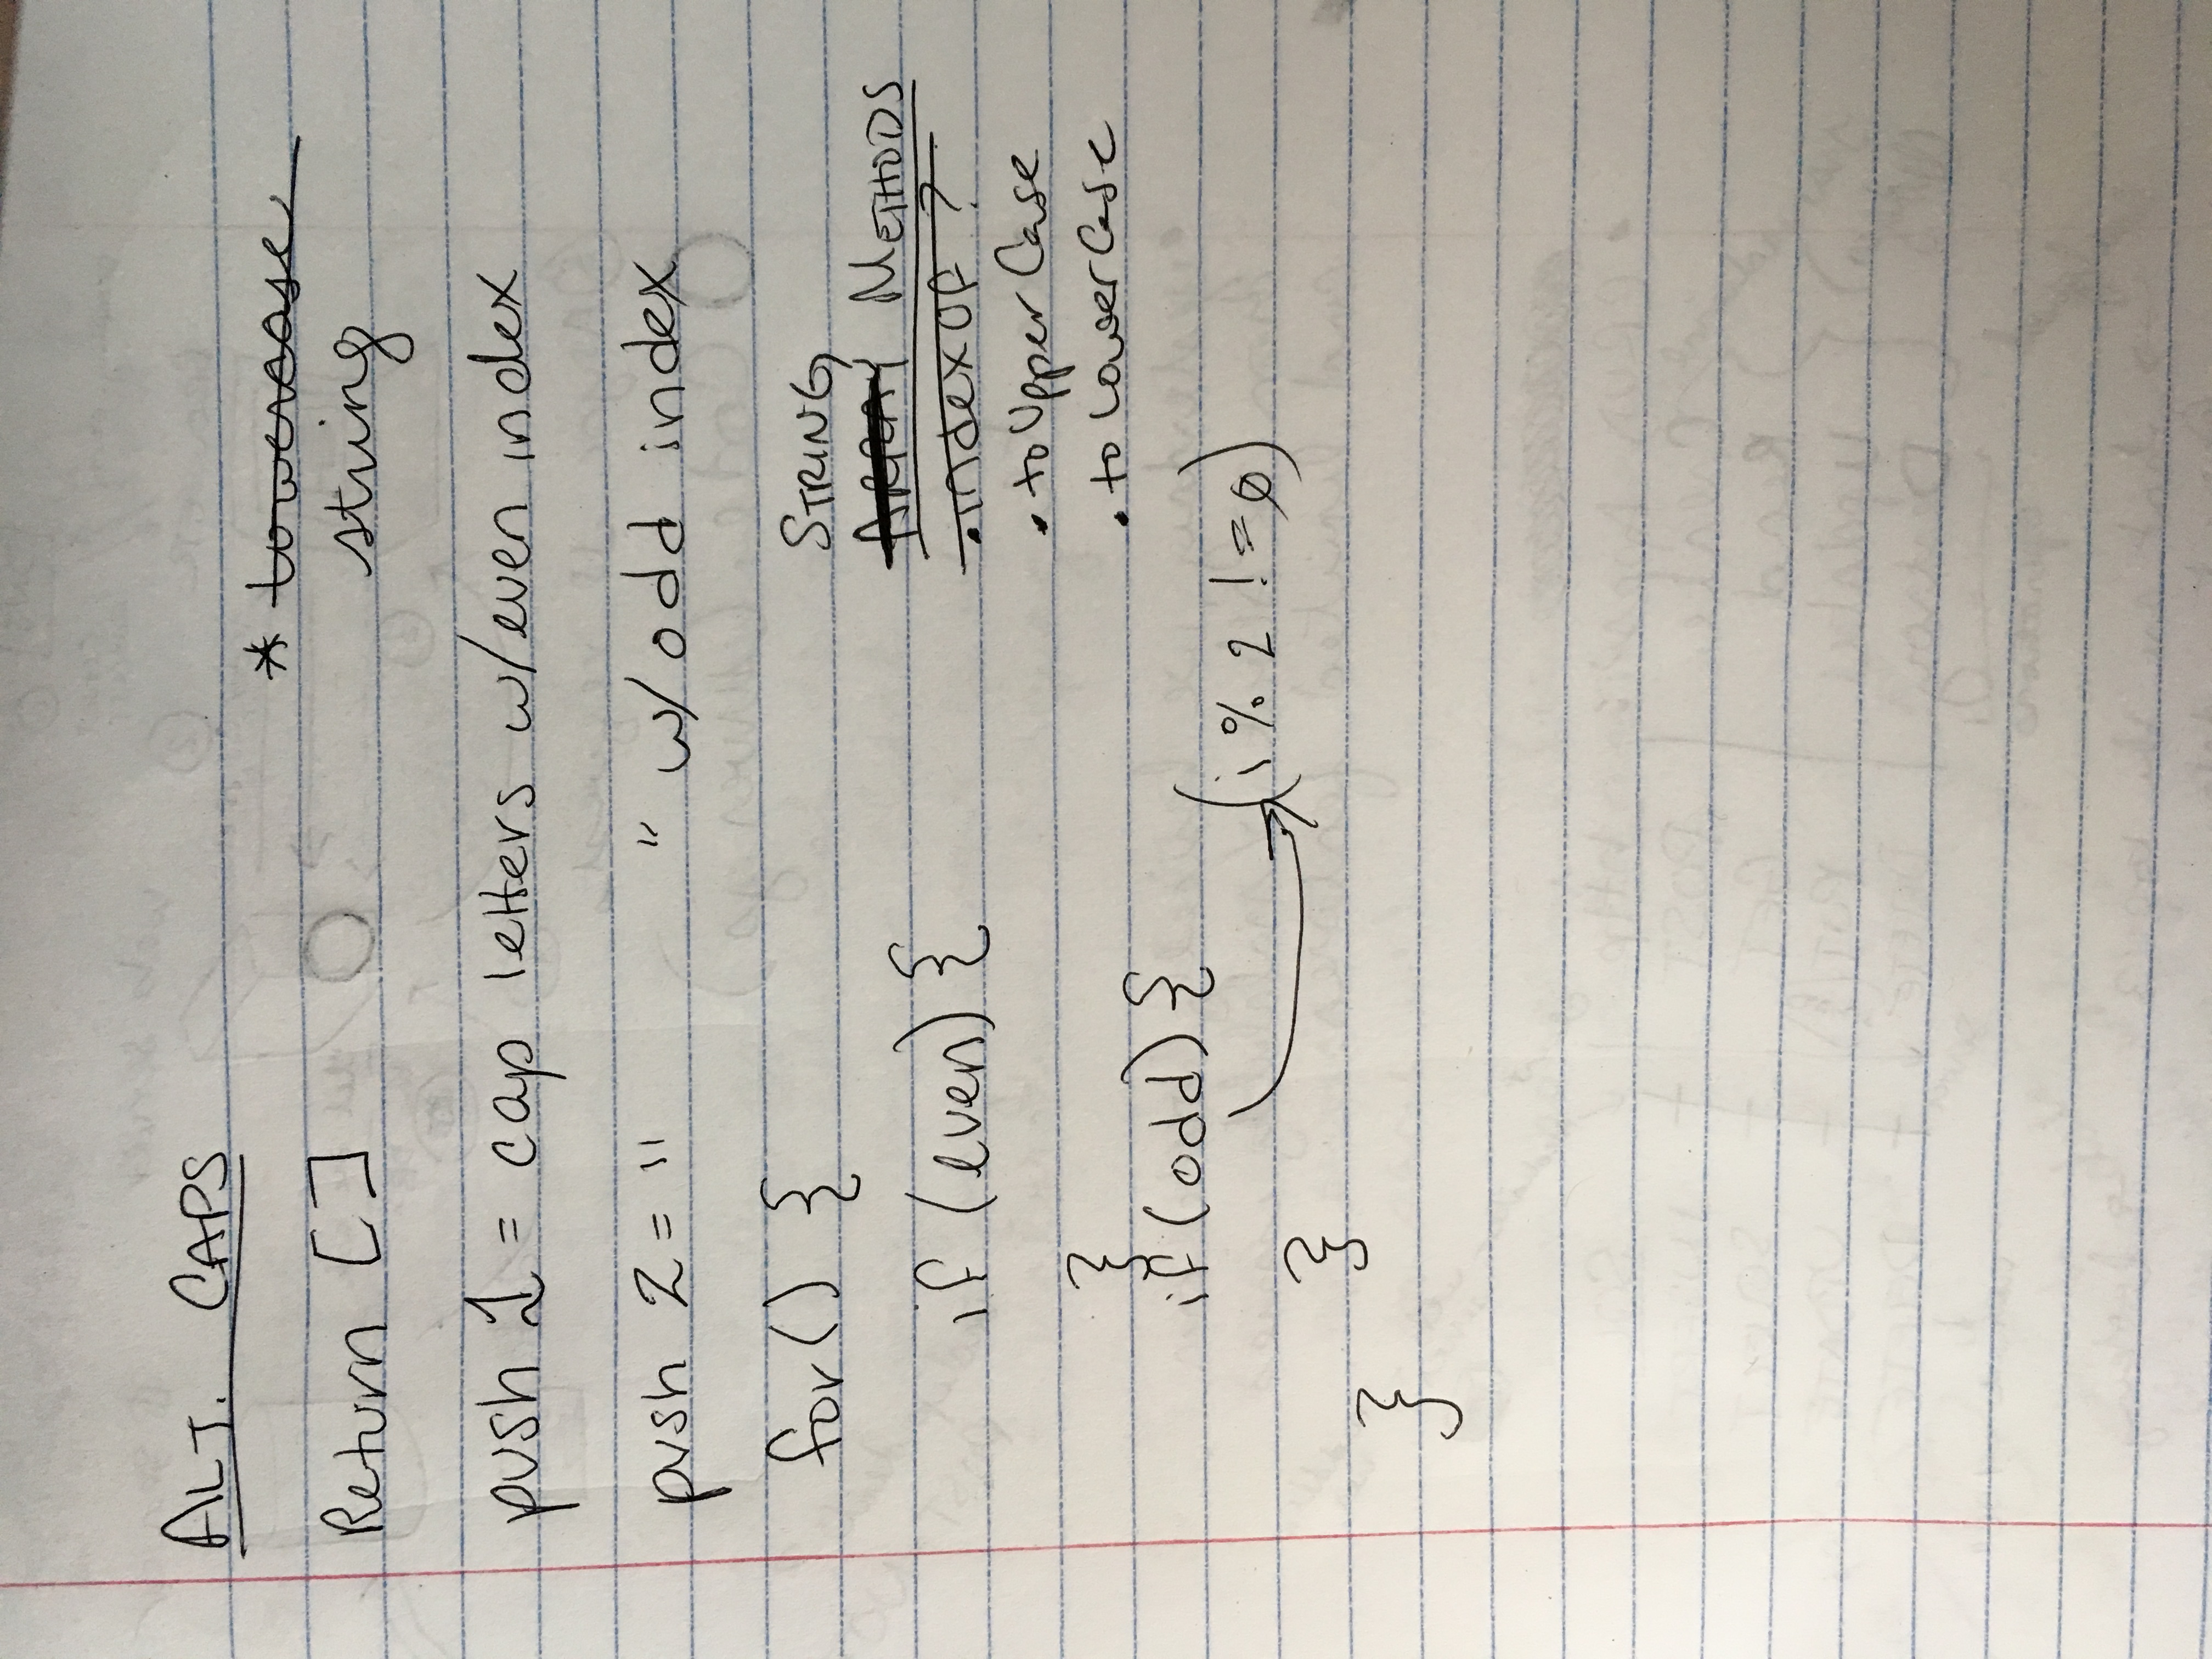 ALT. CAPS
* lowercase
string
Return []
push 1 = cap letters w/even index
push 2 = " " w/odd index
for() {
if (even) {
}
if (odd) {
(i % 2 != 0)
}
}
STRING
ARRAY METHODS
.indexOf ?
. toUpperCase
. toLowerCase